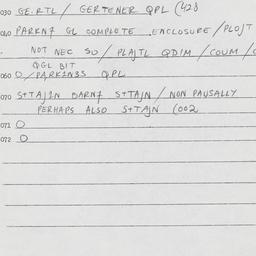 030 GE.RTL / GERTENER QPL (428
040 PARKN7 GL COMPLETE ENCLOSURE / PLOJT
NOT NEC SO / PLAJTL QDIM / COUM /
QGL BIT
060 O / PARK1N3S QPL
070 S+TAJ1N BARN7 S+TAJN / NON PAUSALLY
PERHAPS ALSO S+TAJN (002
071 O
072 O